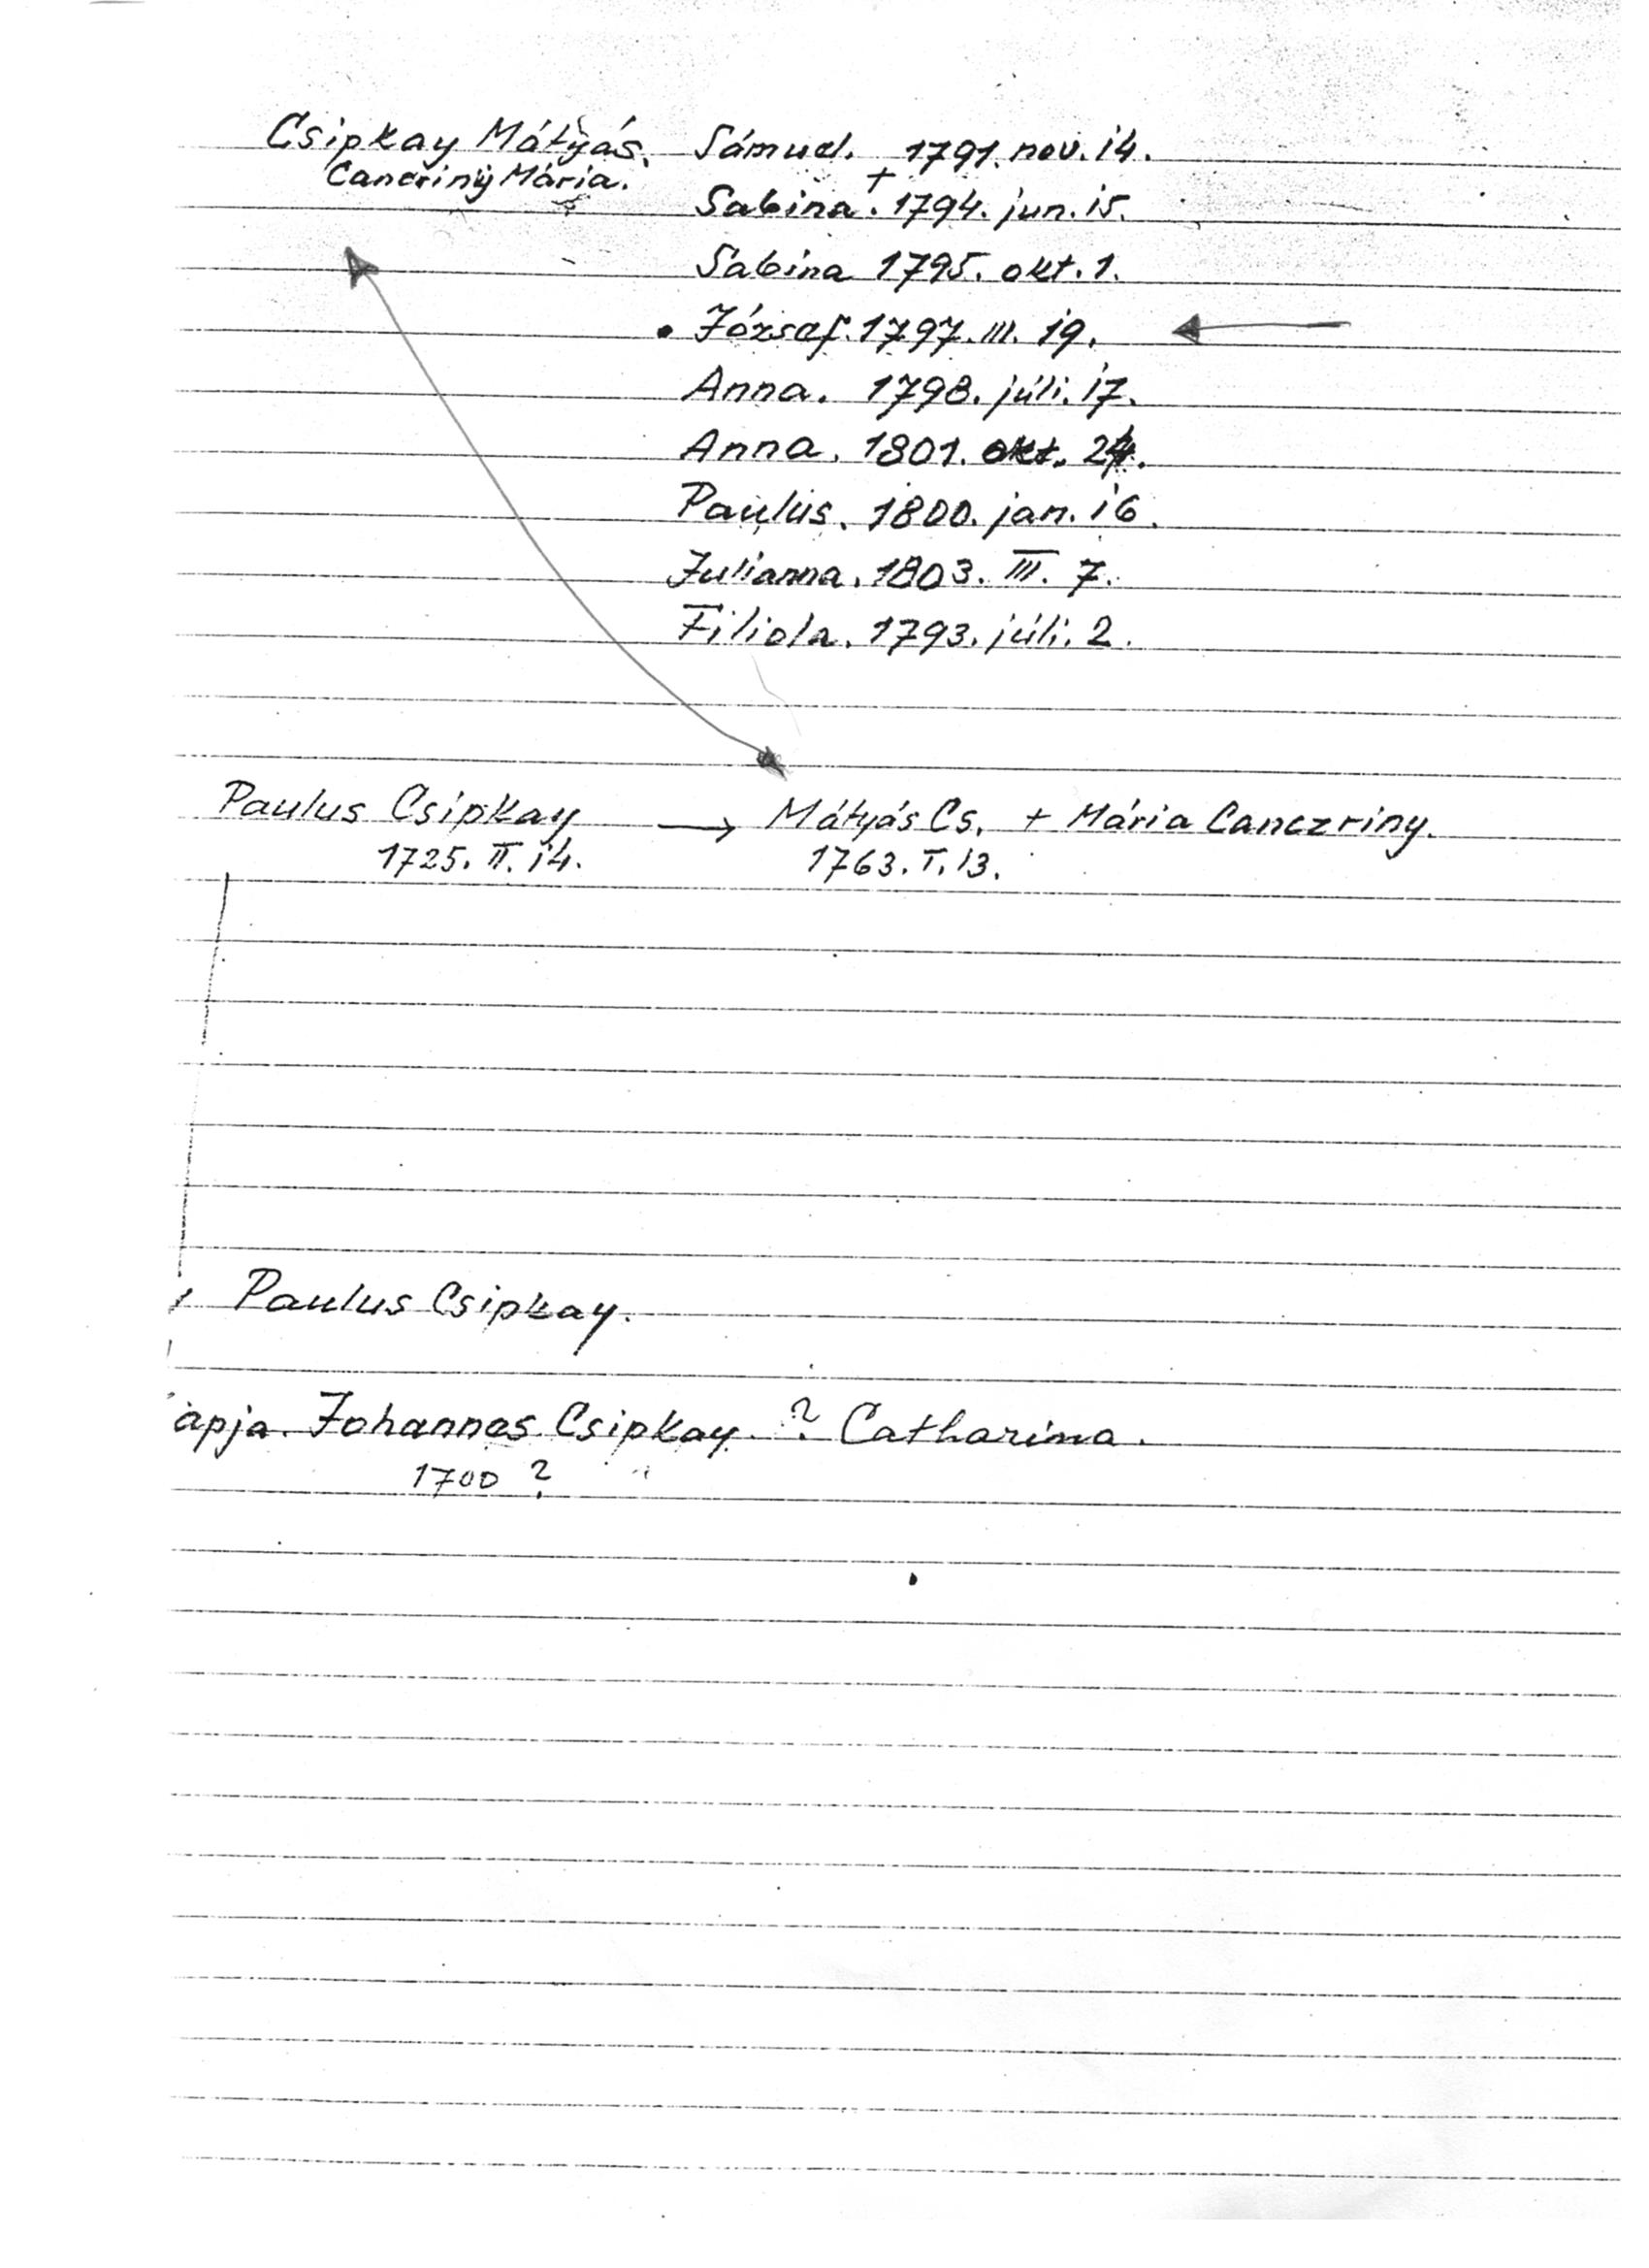 Csipkay Mátyás. Sámuel. 1791. nov. 14.
Cancriny Mária. +
Sabina. 1794. jun. 15.
Sabina 1795. okt. 1.
• József. 1797. III. 19.
Anna. 1798. júli. 17.
Anna. 1801. okt. 24.
Paulus. 1800. jan. 16.
Julianna. 1803. III. 7.
Filiola. 1793. júli. 2.
Paulus Csipkay → Mátyás Cs. + Mária Canczriny.
1725. II. 14. 1763. I. 13.
Paulus Csipkay.
apja. Johannes Csipkay. ? Catharina.
1700 ?